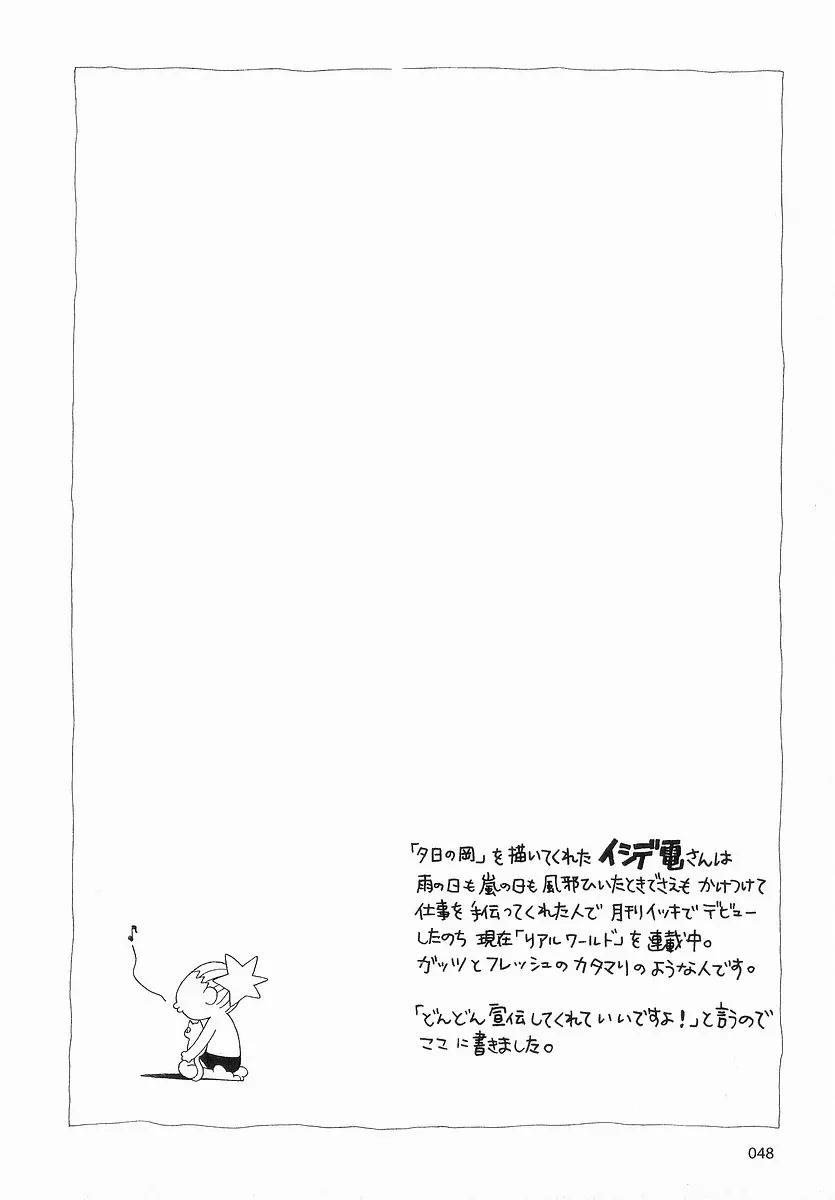 「夕日の岡」を描いてくれた イシデ電さんは
雨の日も嵐の日も風邪ひいたときでさえも かけつけて
仕事を手伝ってくれた人で 月刊イッキでデビュー
したのち 現在「リアルワールド」を連載中。
ガッツとフレッシュのカタマリのような人です。
「どんどん宣伝してくれていいですよ!」と言うので
ココに書きました。
048